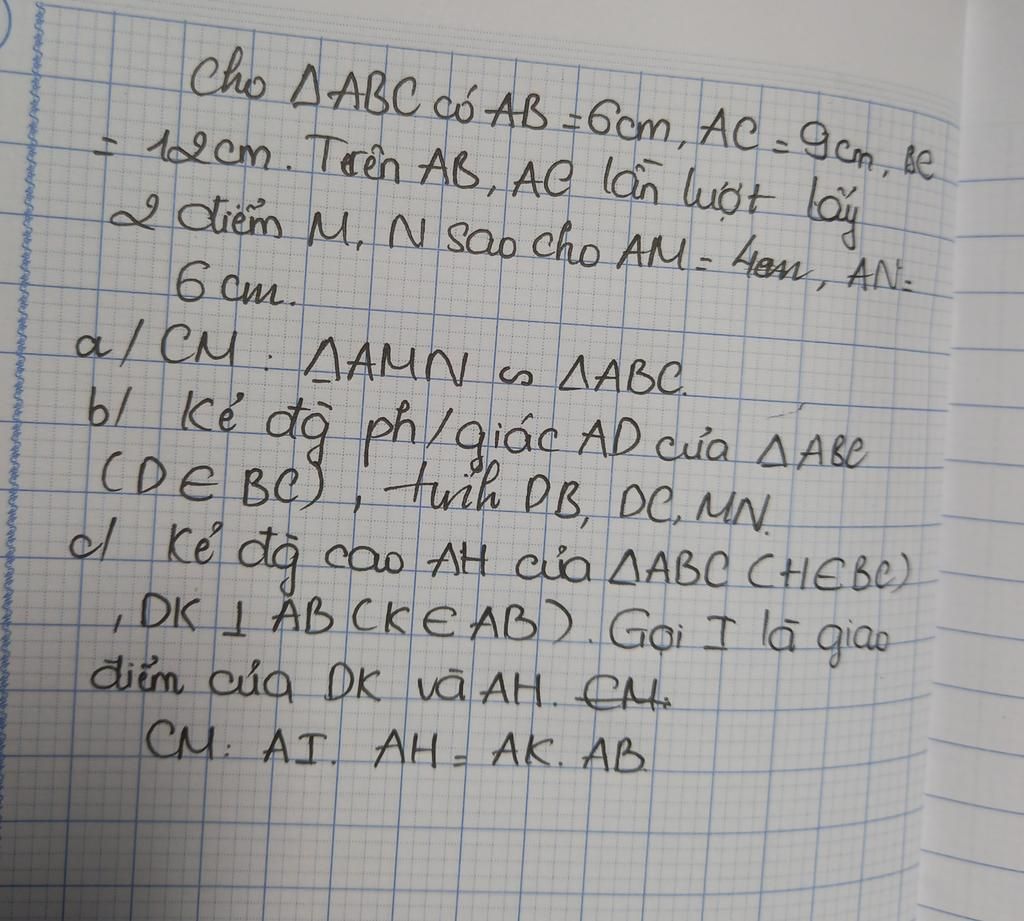 Cho ΔABC có AB = 6cm, AC = 9cm, BC
= 12cm. Trên AB, AC lần lượt lấy
2 điểm M, N sao cho AM = 4cm, AN =
6cm.
a/ CM : ΔAMN ∽ ΔABC.
b/ Kẻ đg ph/giác AD của ΔABC
(D ∈ BC), tính DB, DC, MN.
c/ Kẻ đg cao AH của ΔABC (H ∈ BC)
, DK ⊥ AB (K ∈ AB). Gọi I là giao
điểm của DK và AH. CM.
CM: AI. AH = AK. AB